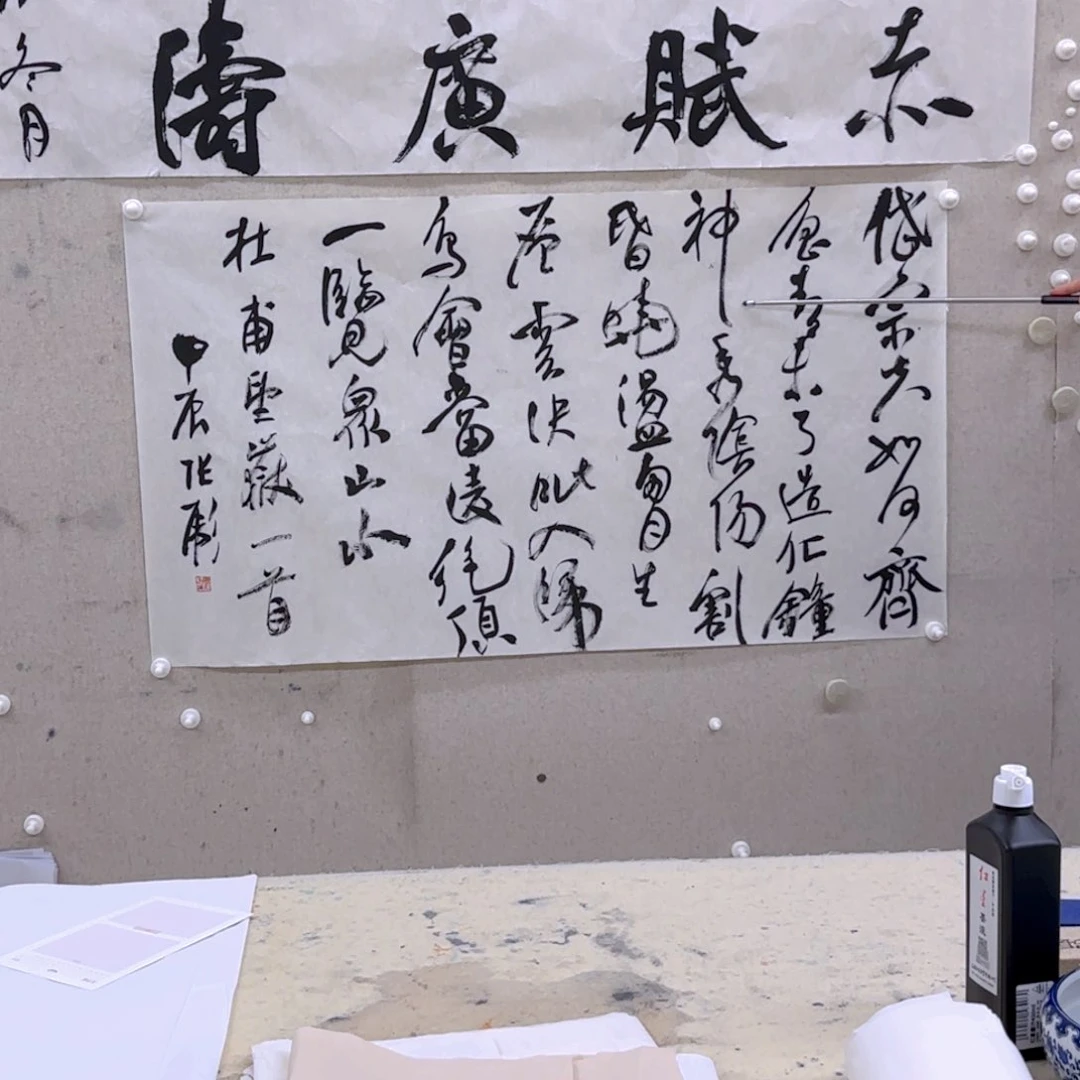 赤賦廣濤
冬月
岱宗夫如何齊
魯青未了造化鐘
神秀陰陽割
昏曉盪胷生
層雲決眦入歸
鳥會當凌絕頂
一覽衆山小
杜甫望嶽一首
甲辰張彪